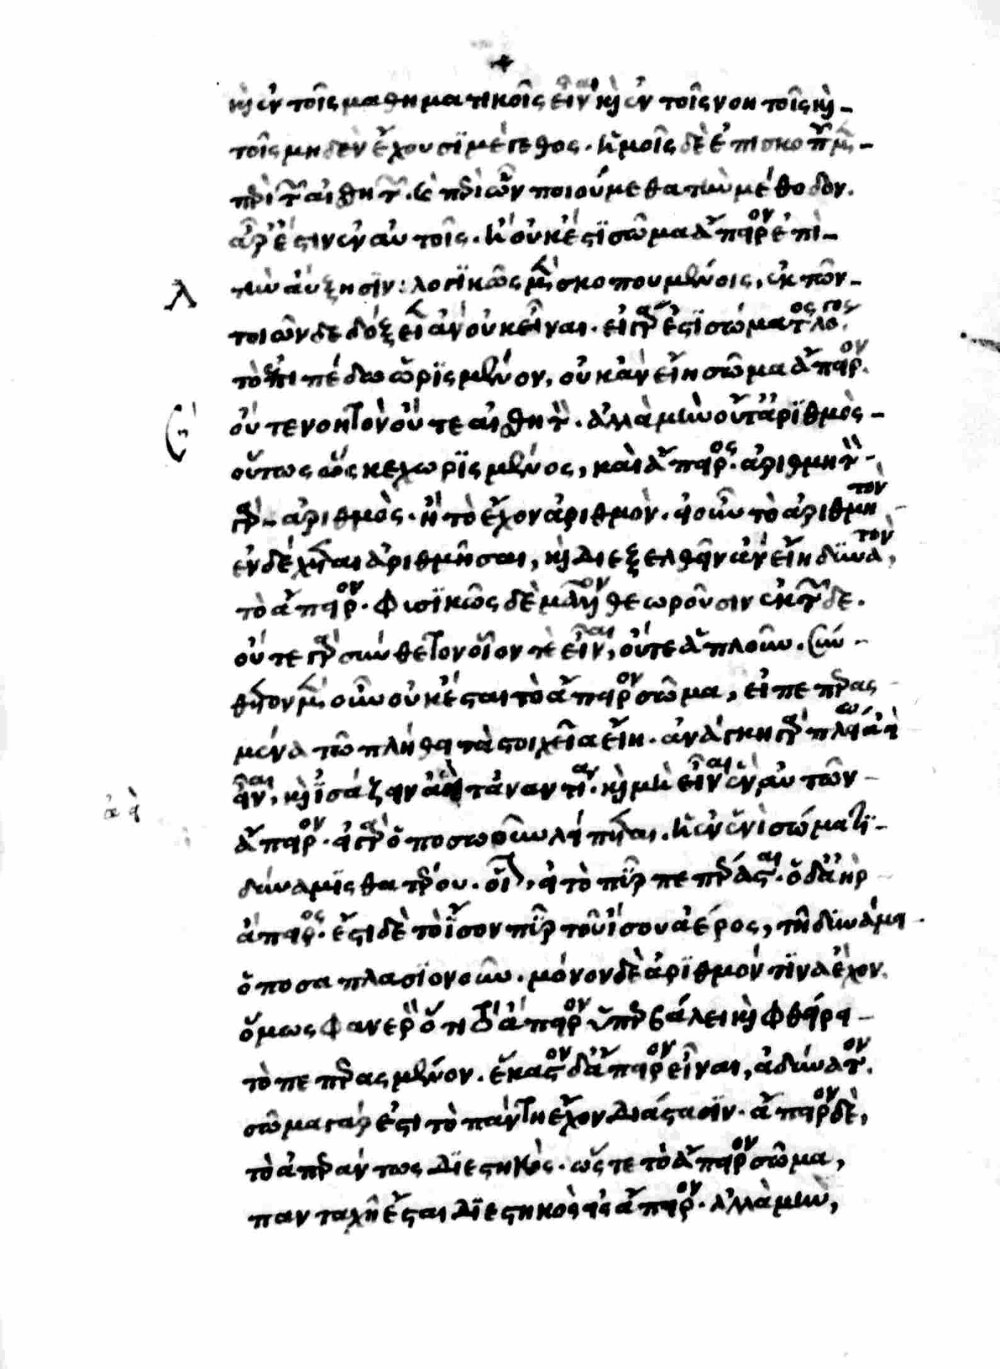 καὶ ἐν τοῖς μαθηματικοῖς εἶναι καὶ ἐν τοῖς νοητοῖς καὶ
τοῖς μηδὲν ἔχουσϊ μέγεθος· ἡμεῖς δὲ ἐπισκοποῦμεν
περὶ τῶν αἰσθητῶν· καὶ περὶ ὧν ποιούμεθα τὴν μέθοδον.
ἆρ' ἔστιν ἐν αὐτοῖς· ἢ οὐκ ἔστϊ σῶμα ἄπειρον ἐπὶ
τὴν αὔξησϊν: λογϊκῶς μὲν σκοπουμένοις, ἐκ τῶν
τοιῶνδε δόξειεν ἂν οὐκ εἶναι· εἰ γάρ ἐστϊ σώματος λόγος
τὸ ἐπιπέδω ὡρϊσμένον, οὐκ ἂν εἴη σῶμα ἄπειρον.
οὔτε νοητὸν οὔτε αἰσθητόν· ἀλλὰ μὴν οὐδ' ἀρϊθμὸς
οὕτως ὡς κεχωρϊσμένος, καὶ ἄπειρος· ἀριθμητὸν
γὰρ ἀριθμὸς· ἢ τὸ ἔχον ἀριθμὸν· εἰ οὖν τὸ ἀριθμητὸν
ἐνδέχεται ἀριθμῆσαι, καὶ διεξελθεῖν ἂν εἴη δϋνατὸν,
τὸ ἄπειρον· φυσϊκῶς δὲ μᾶλλον θεωροῦσιν ἐκ τῶνδε.
οὔτε γὰρ σύνθετον οἷον τὲ εἶναι, οὔτε ἁπλοῦν· σύν
θετον μὲν οὖν οὐκ ἔσται τὸ ἄπειρον σῶμα, εἰ πεπερασ
μένα τῶ πλήθει τὰ στοιχεῖα εἴη· ἀνάγκη γὰρ πλείω ἀεὶ
εἶναι, καὶ ϊσάζειν ἀεὶ τἀναντία· καὶ μὴ εἶναι ἓν αὐτῶν
ἄπειρον· εἰ γὰρ ὁποσωοῦν λείπεται· ἡ ἐν ἑνὶ σώματϊ
δύναμϊς θατέρου· οἷον, εἰ τὸ πῦρ πεπέρασται· ὁ δ' ἀὴρ
ἄπειρος· ἔστι δὲ τὸ ἴσον πῦρ τοῦ ἴσου ἀέρος, τῆ δϋνάμει
ὁποσαπλασϊονοῦν· μόνον δὲ ἀρϊθμόν τϊνα ἔχον.
ὅμως φανερὸν ὅτι τὸ ἄπειρον ὑπερβάλει καὶ φθείρει
τὸ πεπερασμένον· ἕκαστον δ' ἄπειρον εἶναι, ἀδύνατον.
σῶμα γάρ ἐστι τὸ πάντη ἔχον διάστασϊν· ἄπειρον δὲ,
τὸ ἀπεράντως διεστηκὸς· ὥστε τὸ ἄπειρον σῶμα,
πανταχῆ ἔσται διεστηκὸς εἰς ἄπειρον· ἀλλὰ μὴν,
ἀεὶ